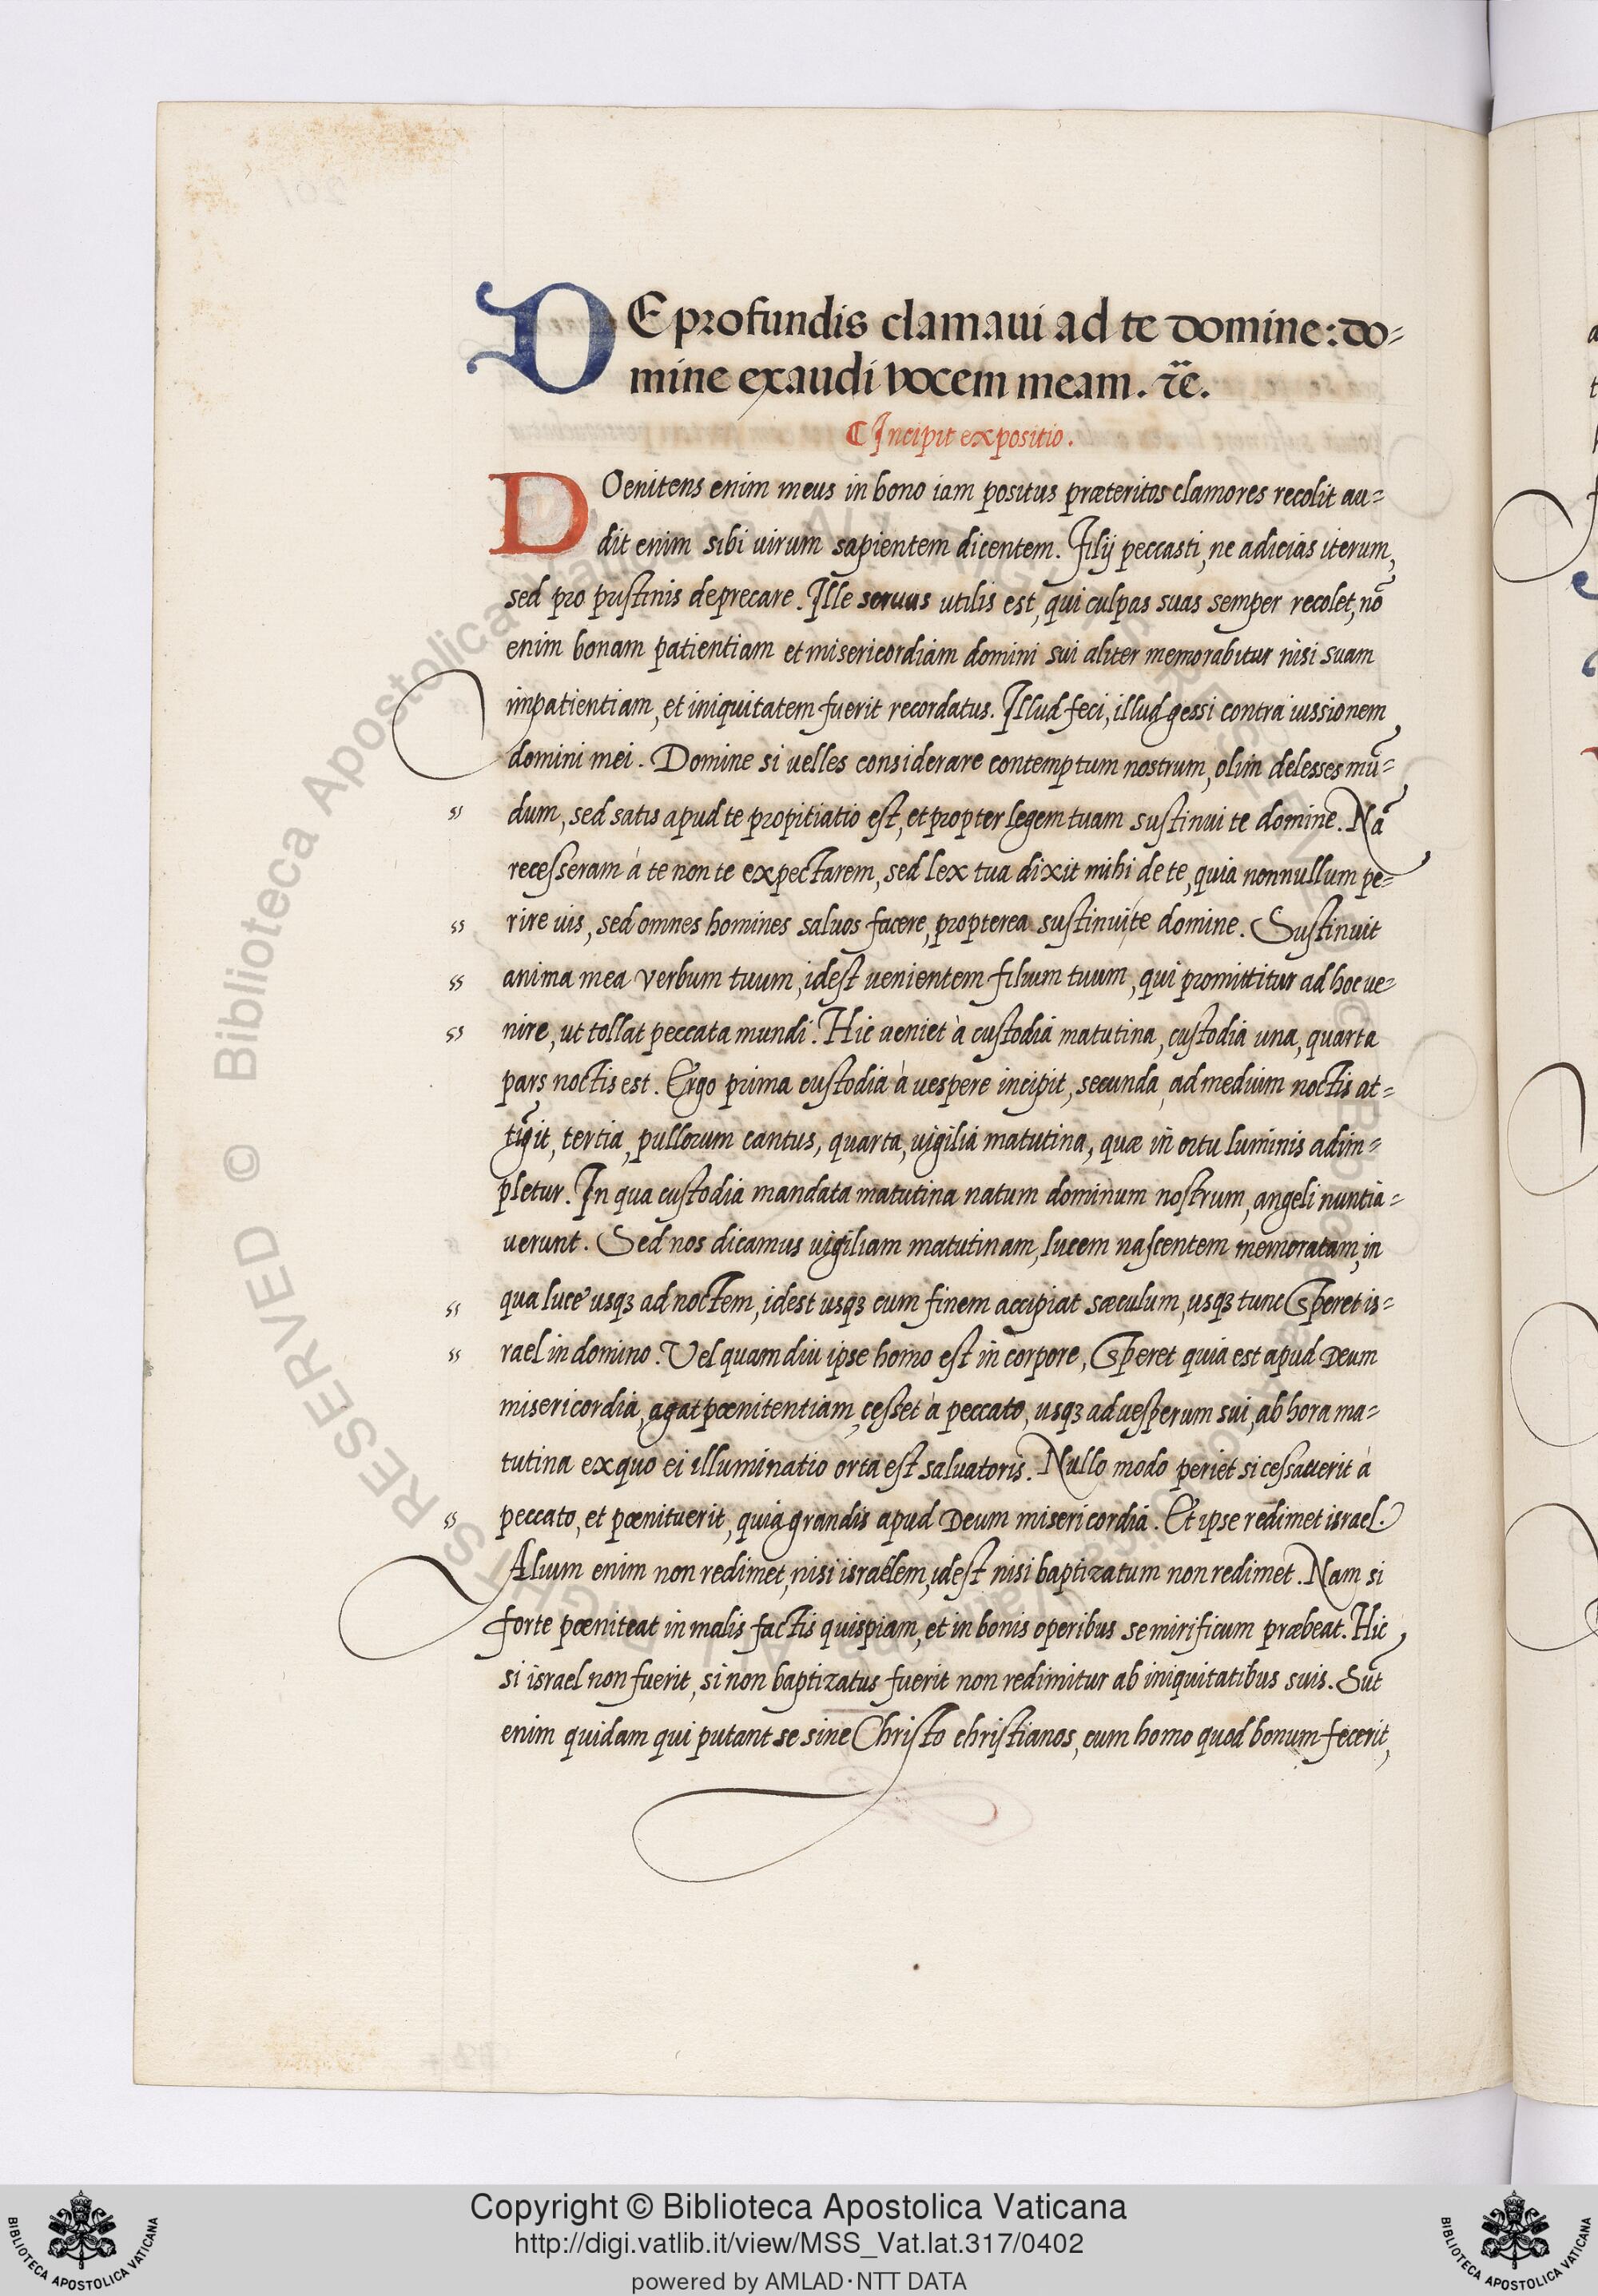 DE profundis clamaui ad te domine: do-
mine exaudi vocem meam. ⁊c̃.
¶ Incipit expositio.
DOenitens enim meus in bono iam positus præteritos clamores recolit au-
dit enim sibi uirum sapientem dicentem. Filij peccasti, ne adicias iterum,
sed pro pristinis deprecare. Ille seruus utilis est, qui culpas suas semper recolet, nõ
enim bonam patientiam et misericordiam domini sui aliter memorabitur nisi suam
impatientiam, et iniquitatem fuerit recordatus. Illud feci, illud gessi contra iussionem
domini mei. Domine si uelles considerare contemptum nostrum, olim delesses mũ-
dum, sed satis apud te propitiatio est, et propter legem tuam sustinui te domine. Nã
recesseram à te non te expectarem, sed lex tua dixit mihi de te, quia nonnullum pe-
rire uis, sed omnes homines saluos facere, propterea sustinui te domine. Sustinuit
anima mea verbum tuum, idest uenientem filium tuum, qui promittitur ad hoc ue-
nire, ut tollat peccata mundi. Hic ueniet à custodia matutina, custodia una, quarta
pars noctis est. Ergo prima custodia à uespere incipit, secunda, ad medium noctis at-
tĩgit, tertia, pullorum cantus, quarta, uigilia matutina, quæ in ortu luminis adim-
pletur. In qua custodia mandata matutina natum dominum nostrum, angeli nuntia-
uerunt. Sed nos dicamus uigiliam matutinam, lucem nascentem memoratam, in
qua luce usqꝫ ad noctem, idest usqꝫ cum finem accipiat sæculum, usqꝫ tunc Speret is-
rael in domino. Vel quam diu ipse homo est in corpore, Speret quia est apud Deum
misericordia, agat pœnitentiam, cesset à peccato, usqꝫ ad uesperum sui, ab hora ma-
tutina ex quo ei illuminatio orta est saluatoris. Nullo modo periet si cessauerit à
peccato, et pœnituerit, quia grandis apud Deum misericordia. Et ipse redimet israel.
Alium enim non redimet, nisi israëlem, idest nisi baptizatum non redimet. Nam si
forte pœniteat in malis factis quispiam, et in bonis operibus se mirificum præbeat. Hic
si israel non fuerit, si non baptizatus fuerit non redimitur ab iniquitatibus suis. Sũt
enim quidam qui putant se sine Christo christianos, cum homo quod bonum fecerit,
Copyright © Biblioteca Apostolica Vaticana
http://digi.vatlib.it/view/MSS_Vat.lat.317/0402
powered by AMLAD·NTT DATA
BIBLIOTECA APOSTOLICA VATICANA
BIBLIOTECA APOSTOLICA VATICANA